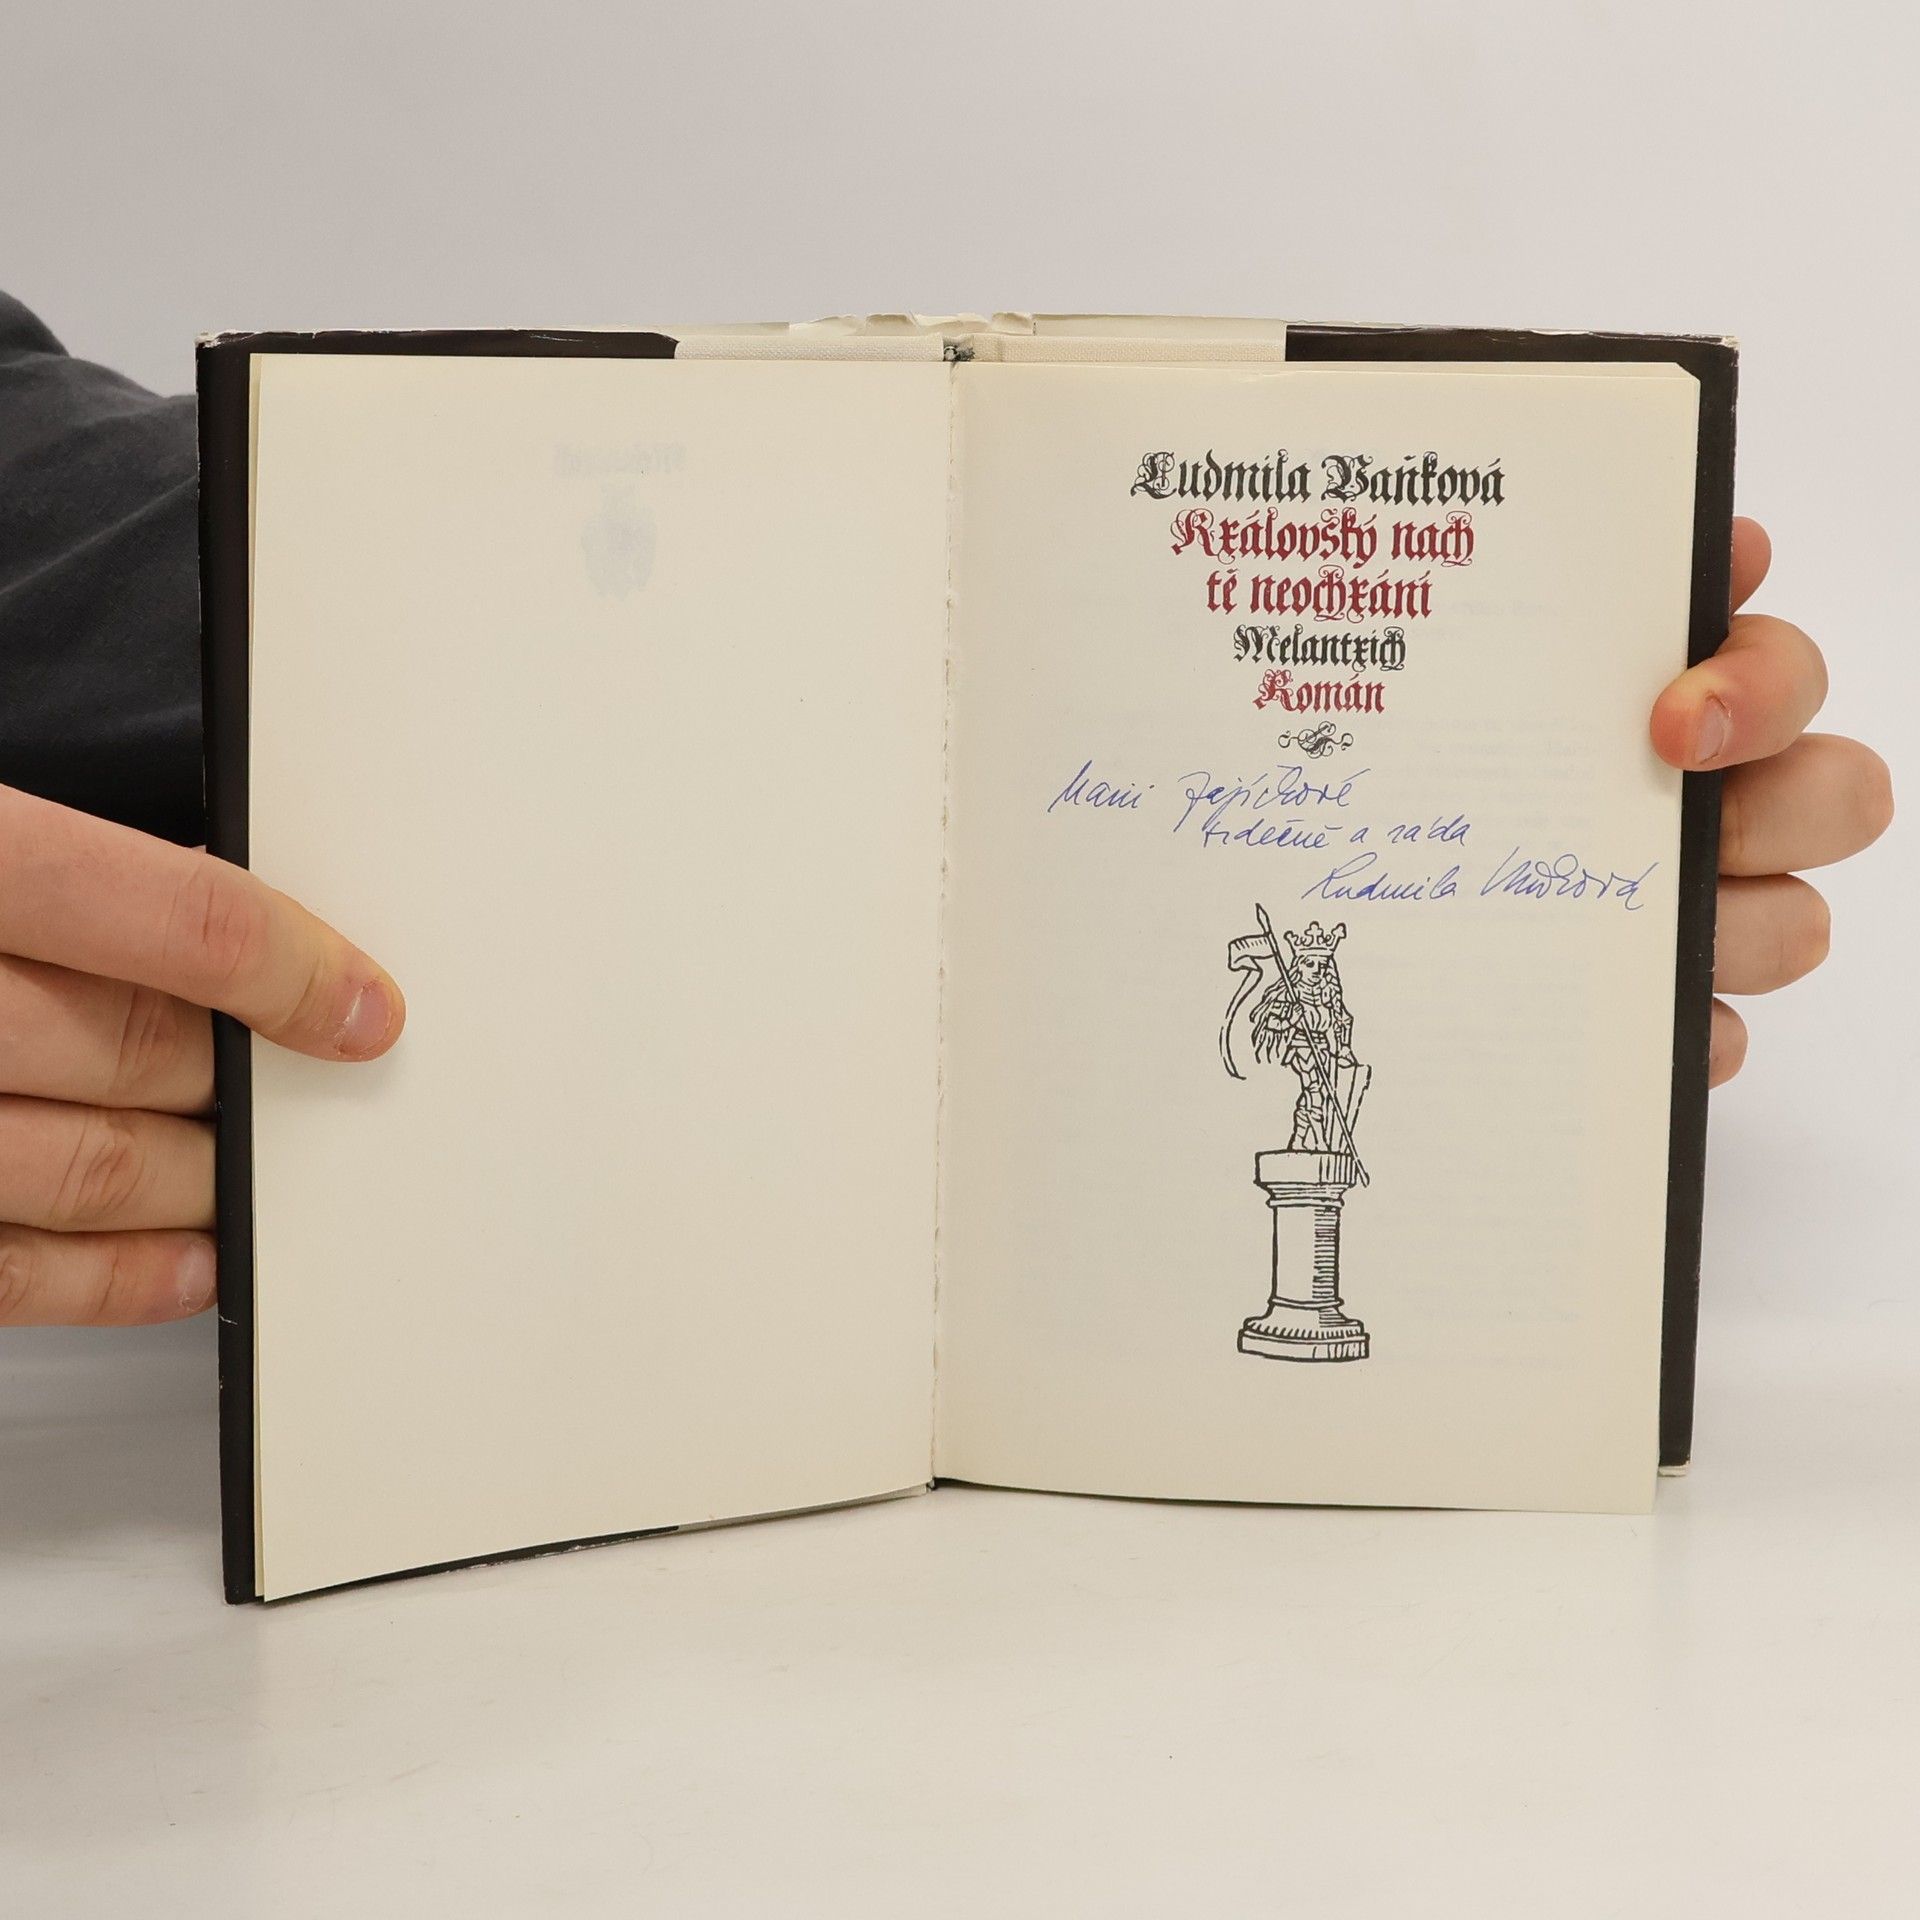 Ludmila Vaňková
Královský nach
tě neochrání
Melantrich
Román
Marii Zajíčkové
srdečně a ráda
Ludmila Vaňková